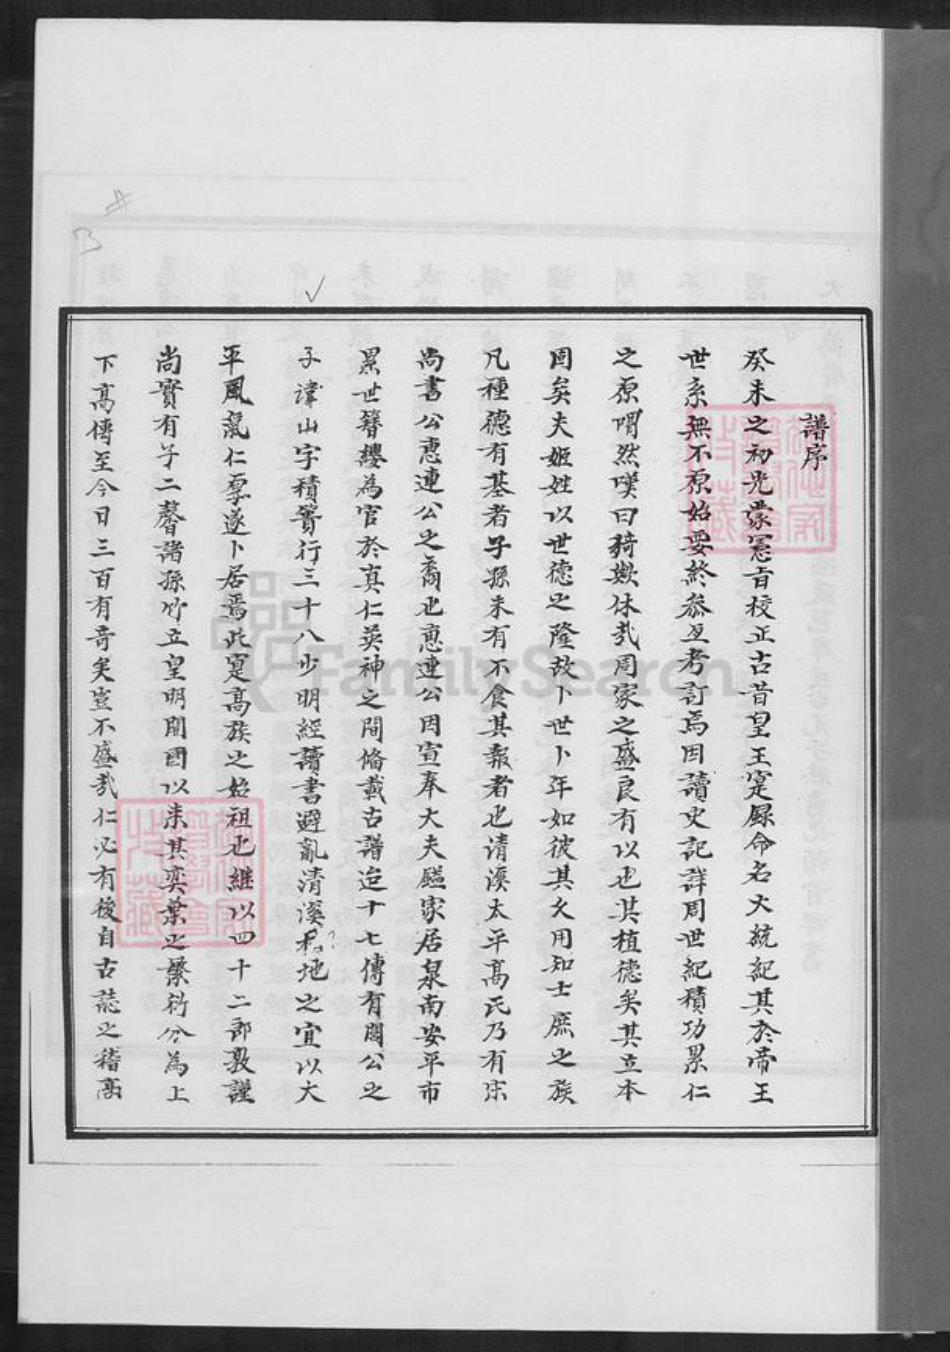 譜序
癸未之初光蒙憲旨校正古昔皇王寔錄命名大統紀其於帝王
世系無不原始要終參互考訂焉因讀史記詳周世紀積功累仁
之原喟然嘆曰猗歟休哉周家之盛良有以也其植德矣其立本
固矣夫姬姓以世德之隆故卜世卜年如彼其久用知士庶之族
凡種德有基者子孫未有不食其報者也清溪太平高氏乃有宋
尚書公惠連公之裔也惠連公因宣奉大夫鎰家居泉南安平市
累世簪纓為官於真仁英神之間俻載古譜迨十七傳有閏公之
子諱山字積實行三十八少明經讀書避亂清溪私地之宜以大
平風氣仁厚遂卜居焉此寔高族之始祖也継以四十二郎敦謹
尚實有子二馨諸孫竹立皇明開國以來其奕葉之蘩衍分為上
下高傳至今日三百有奇矣豈不盛哉仁必有後自古誌之稽高
FamilySearch